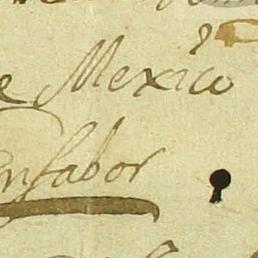 e Mexico
en fabor